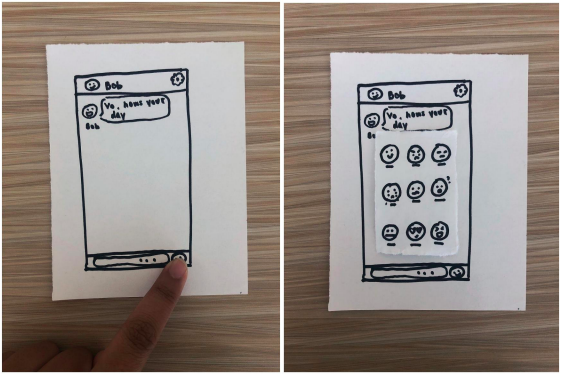 Bob
Yo, hows your
day
Bob
Bob
Yo, hows your
day
Bo